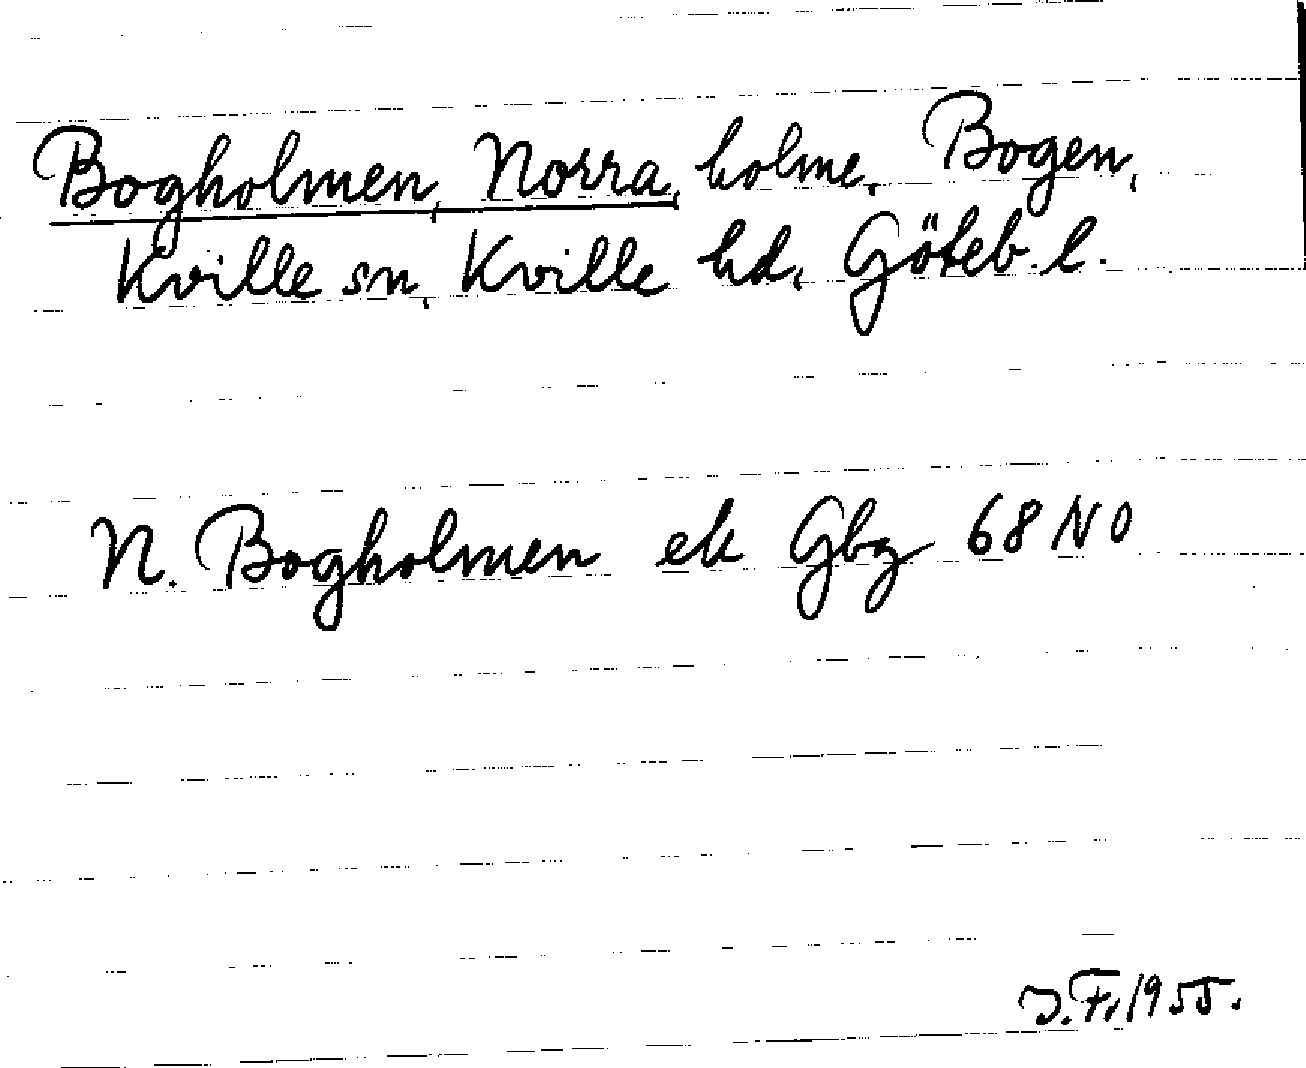 Bogholmen, Norra, holme, Bogen,
Kville sn, Kville hd, Göteb. l.
N. Bogholmen ek Gbg 68 NO
J. Fr, 1955.